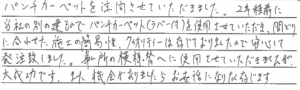 パンチカーペットを注文させていただきました。2年程前に
当社の別の建物でパンチカーペット(ラバー付)を使用させていただき、間どり
に合わせ、施工の簡易性、クオリティーは存じておりましたので安心して
発注致しました。事務所の模様替えに使用させていただきましたが
大成功です。また機会がありましたらお世話になりたく存じます